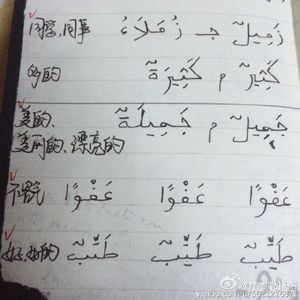 同学,同事 زَمِيلٌ ج زُمَلَاءُ
多的 كَثِيرٌ م كَثِيرَةٌ
美的 جَمِيلٌ م جَمِيلَةٌ
美丽的、漂亮的
不客气 عَفْوًا عَفْوًا عَفْوًا
好,好的 طَيِّبٌ طَيِّبٌ طَيِّبٌ